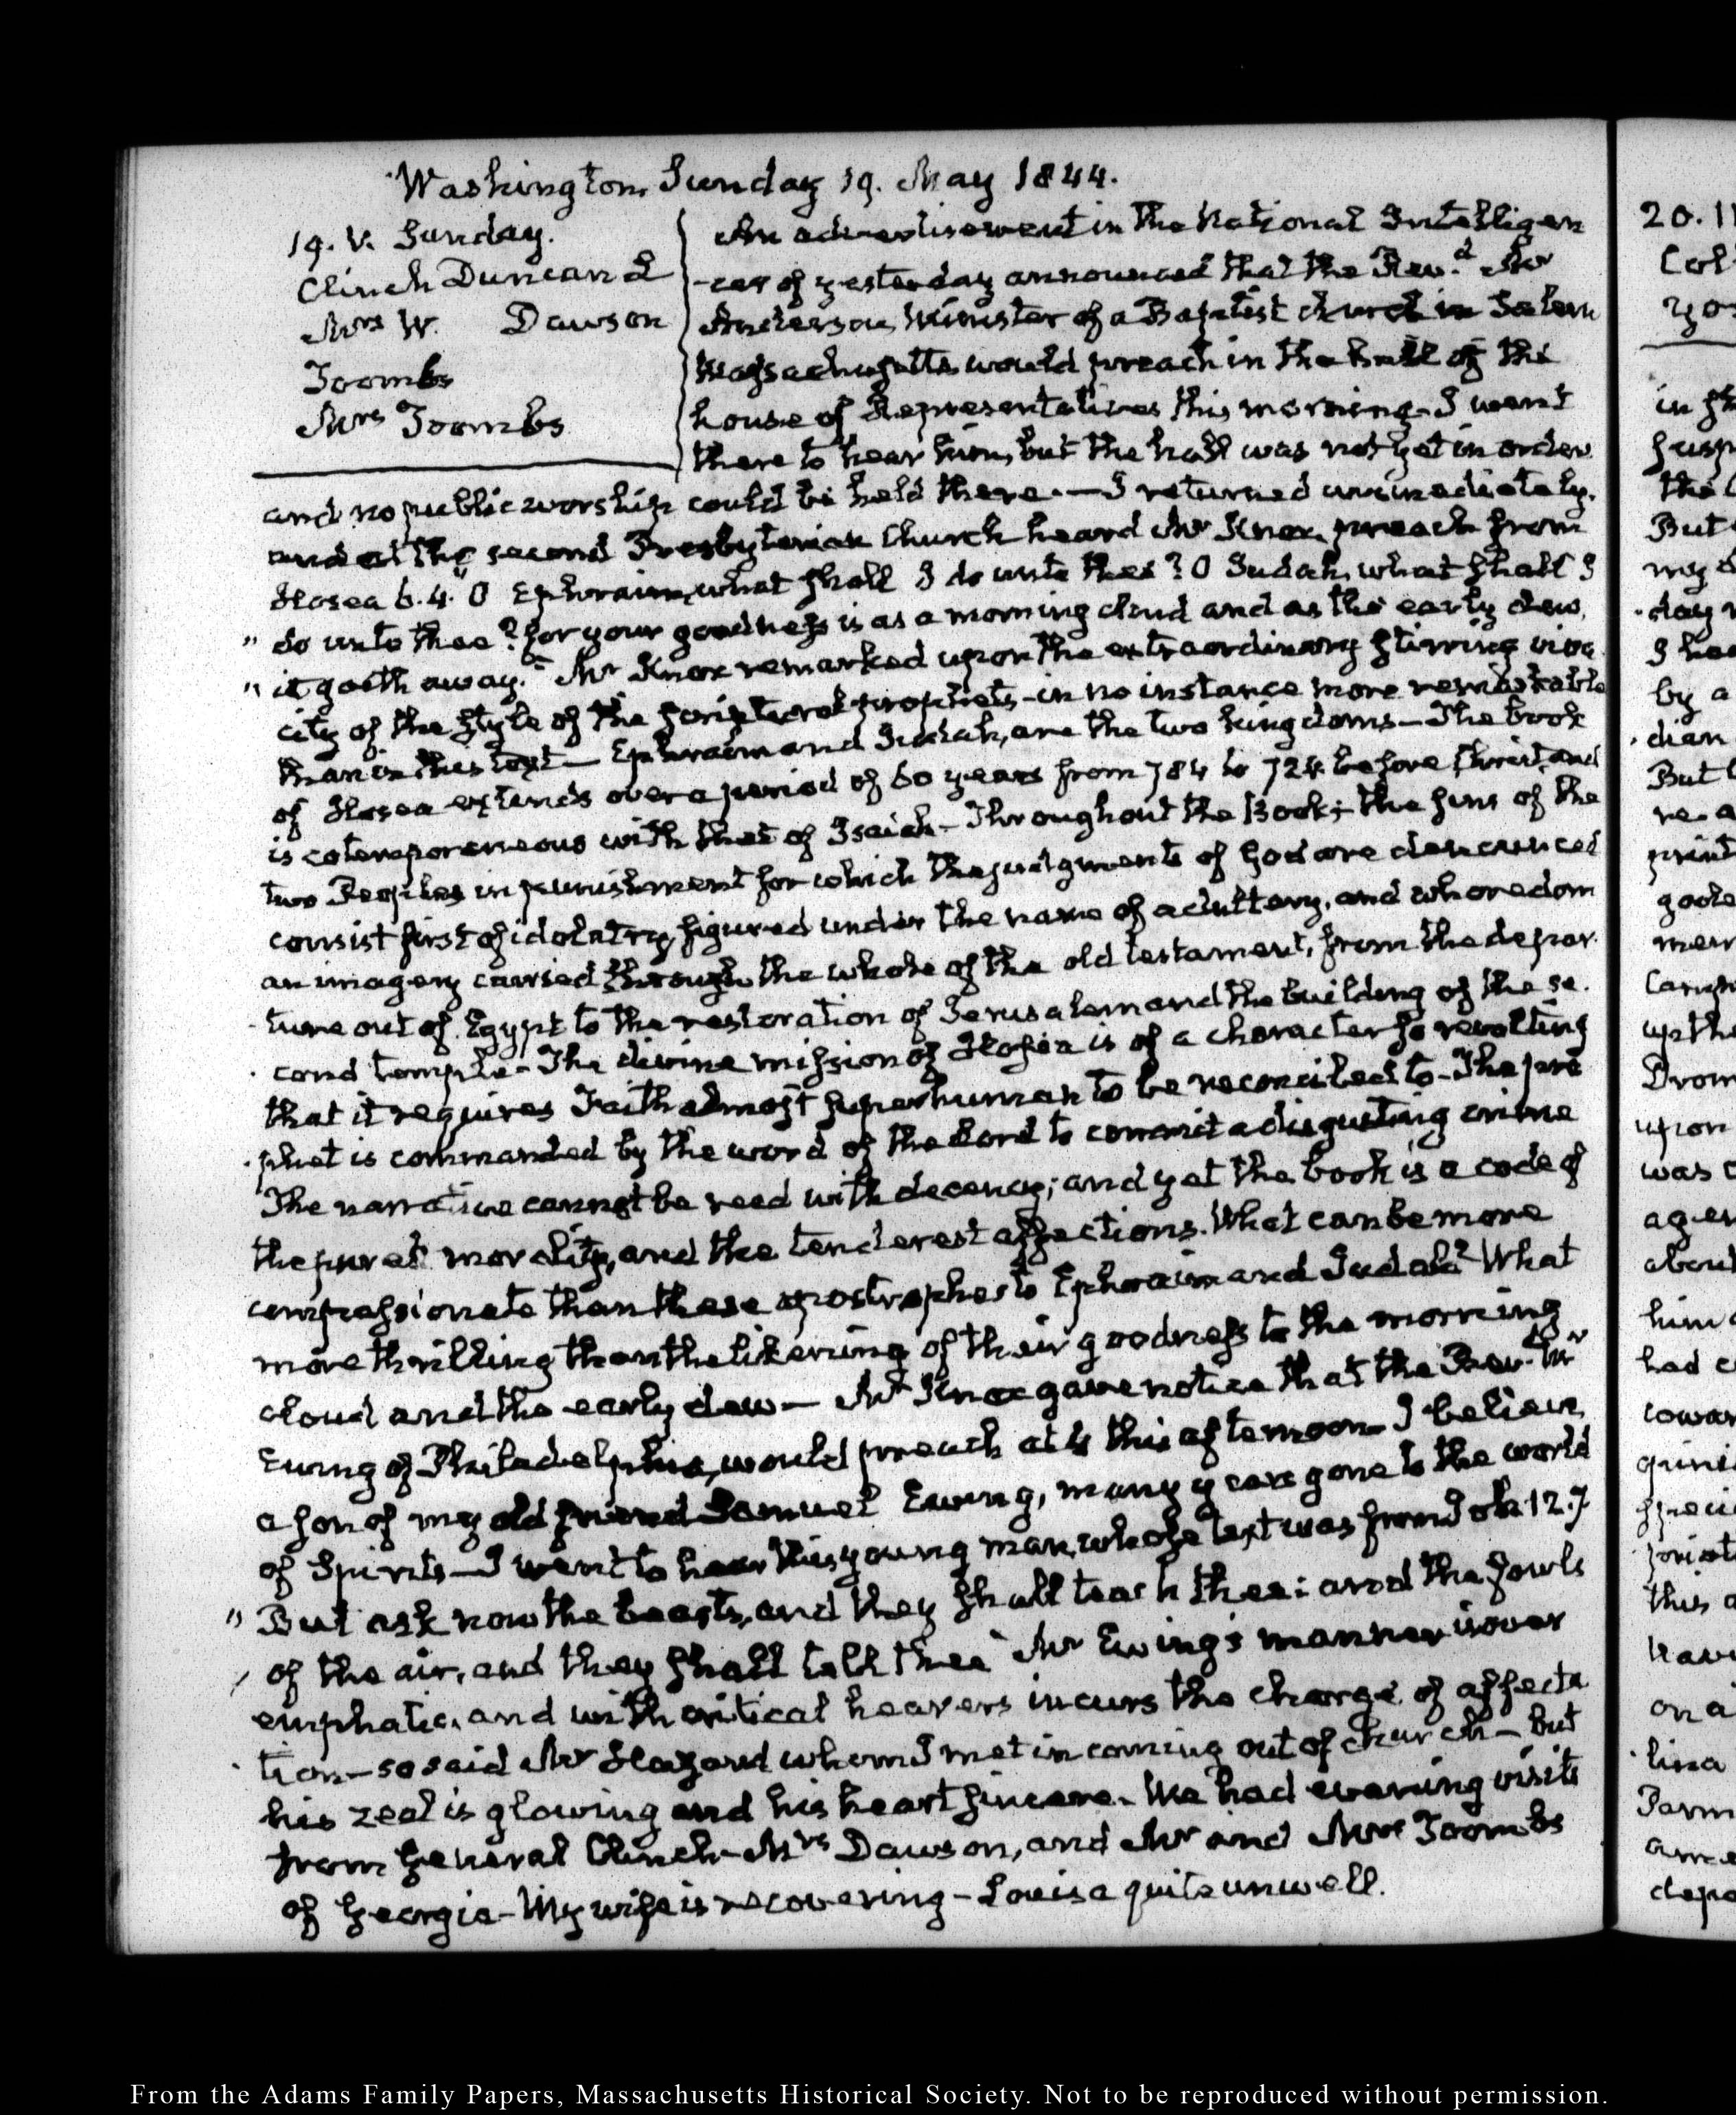 Washington Sunday 19. May 1844.
19. V. Sunday.
Clinch Duncan L
Mrs W. Dawson
Toombs
Mrs Toombs
An advertisement in the National Intelligen
-cer of yesterday announced that the Revd. Mr
Anderson, Minister of a Baptist church in Salem
Massachusetts would preach in the hall of the
house of Representatives this morning- I went
there to hear him, but the hall was not yet in order
and no public worship could be held there.—I returned immediately,
and at the second Presbyterian Church heard Mr Knox preach from
Hosea 6.4. "O Ephraim, what shall I do unto thee? O Judah, what shall I
" do unto thee? for your goodness is as a morning cloud and as the early dew,
" it goeth away." Mr Knox remarked upon the extraordinary stirring viva
city of the style of the scriptural prophets- in no instance more remarkable
than in this text— Ephraim and Judah, are the two kingdoms— The book
of Hosea extends over a period of 60 years from 784 to 724 before Christ, and
is cotemporaneous with that of Isaiah- Throughout the Book, the sins of the
two Peoples in punishment for which the judgments of God are denounced
consist first of idolatry, figured under the name of adultery, and whoredom
an imagery carried through the whole of the old testament, from the depar
ture out of Egypt to the restoration of Jerusalem and the building of the se-
cond temple- The divine mission of Hosea is of a character so revolting
that it requires Faith almost superhuman to be reconciled to- The pro
phet is commanded by the word of the Lord to commit a disgusting crime
The narrative cannot be read with decency; and yet the book is a code of
the purest morality, and the tenderest affections. What can be more
compassionate than these apostrophes to Ephraim and Judah? What
more thrilling than the likening of their goodness to the morning
cloud and the early dew— Mr Knox gave notice that the Revd. Mr
Ewing of Philadelphia, would preach at 4 this afternoon- I believe
a son of my old friend Samuel Ewing, many years gone to the world
of Spirits—I went to hear this young man, whose text was from Job 12.7
" But ask now the beasts, and they shall teach thee: and the fowls
" of the air, and they shall tell thee" Mr Ewing's manner is over
emphatic, and with critical hearers incurs the charge of affecta
tion—so said Mr Hazard whom I met in coming out of church— but
his zeal is glowing and his heart sincere. We had evening visits
from General Clinch- Mrs Dawson, and Mr and Mrs Toombs
of Georgia- My wife is recovering- Louisa quite unwell.
From the Adams Family Papers, Massachusetts Historical Society. Not to be reproduced without permission.